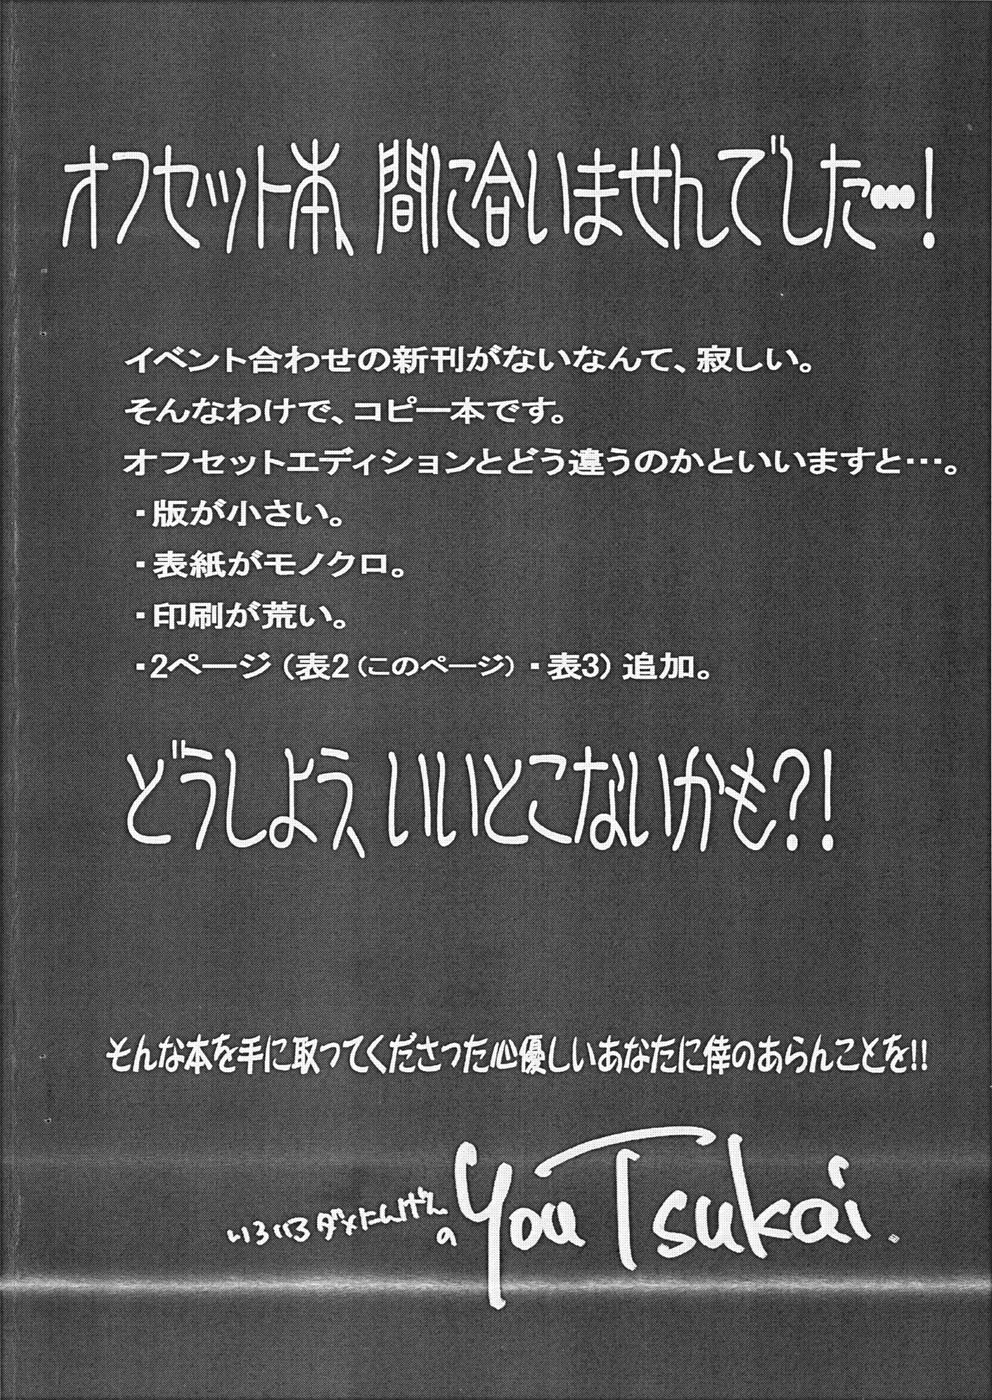 オフセット本、間に合いませんでした…!
イベント合わせの新刊がないなんて、寂しい。
そんなわけで、コピー本です。
オフセットエディションとどう違うのかといいますと…。
・版が小さい。
・表紙がモノクロ。
・印刷が荒い。
・2ページ（表2（このページ）・表3）追加。
どうしよう、いいとこないかも?!
そんな本を手に取ってくださった心優しいあなたに倖のあらんことを!!
いろいろダメにんげん
の You Tsukai.